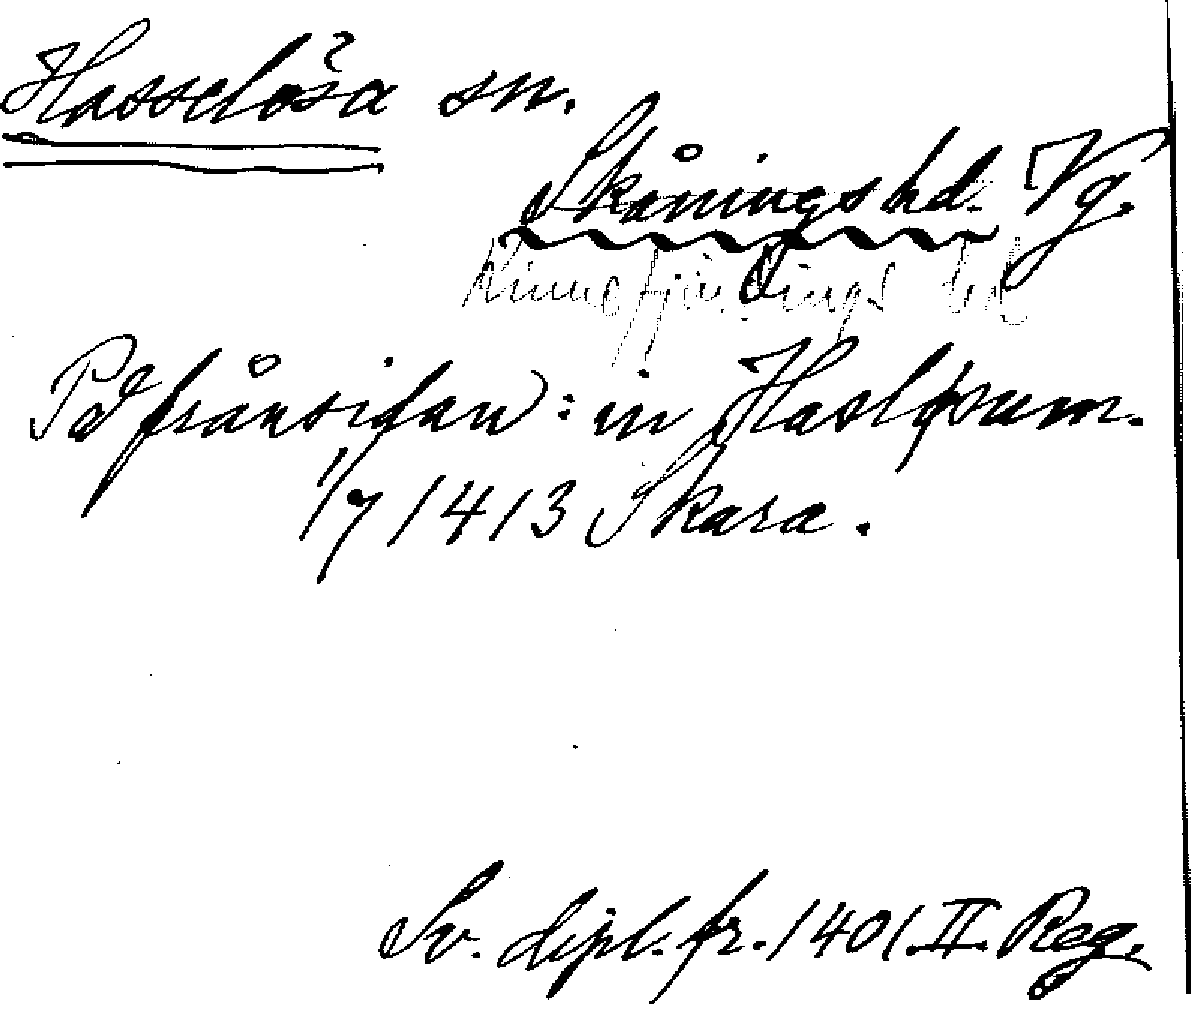 Hasselösa sn.
Skånings hd. Vg.
Kinnefjärdings hd
På frånsidan: in Hasløsum.
1/7 1413 Skara.
Sv. dipl. fr. 1401 II. Reg.